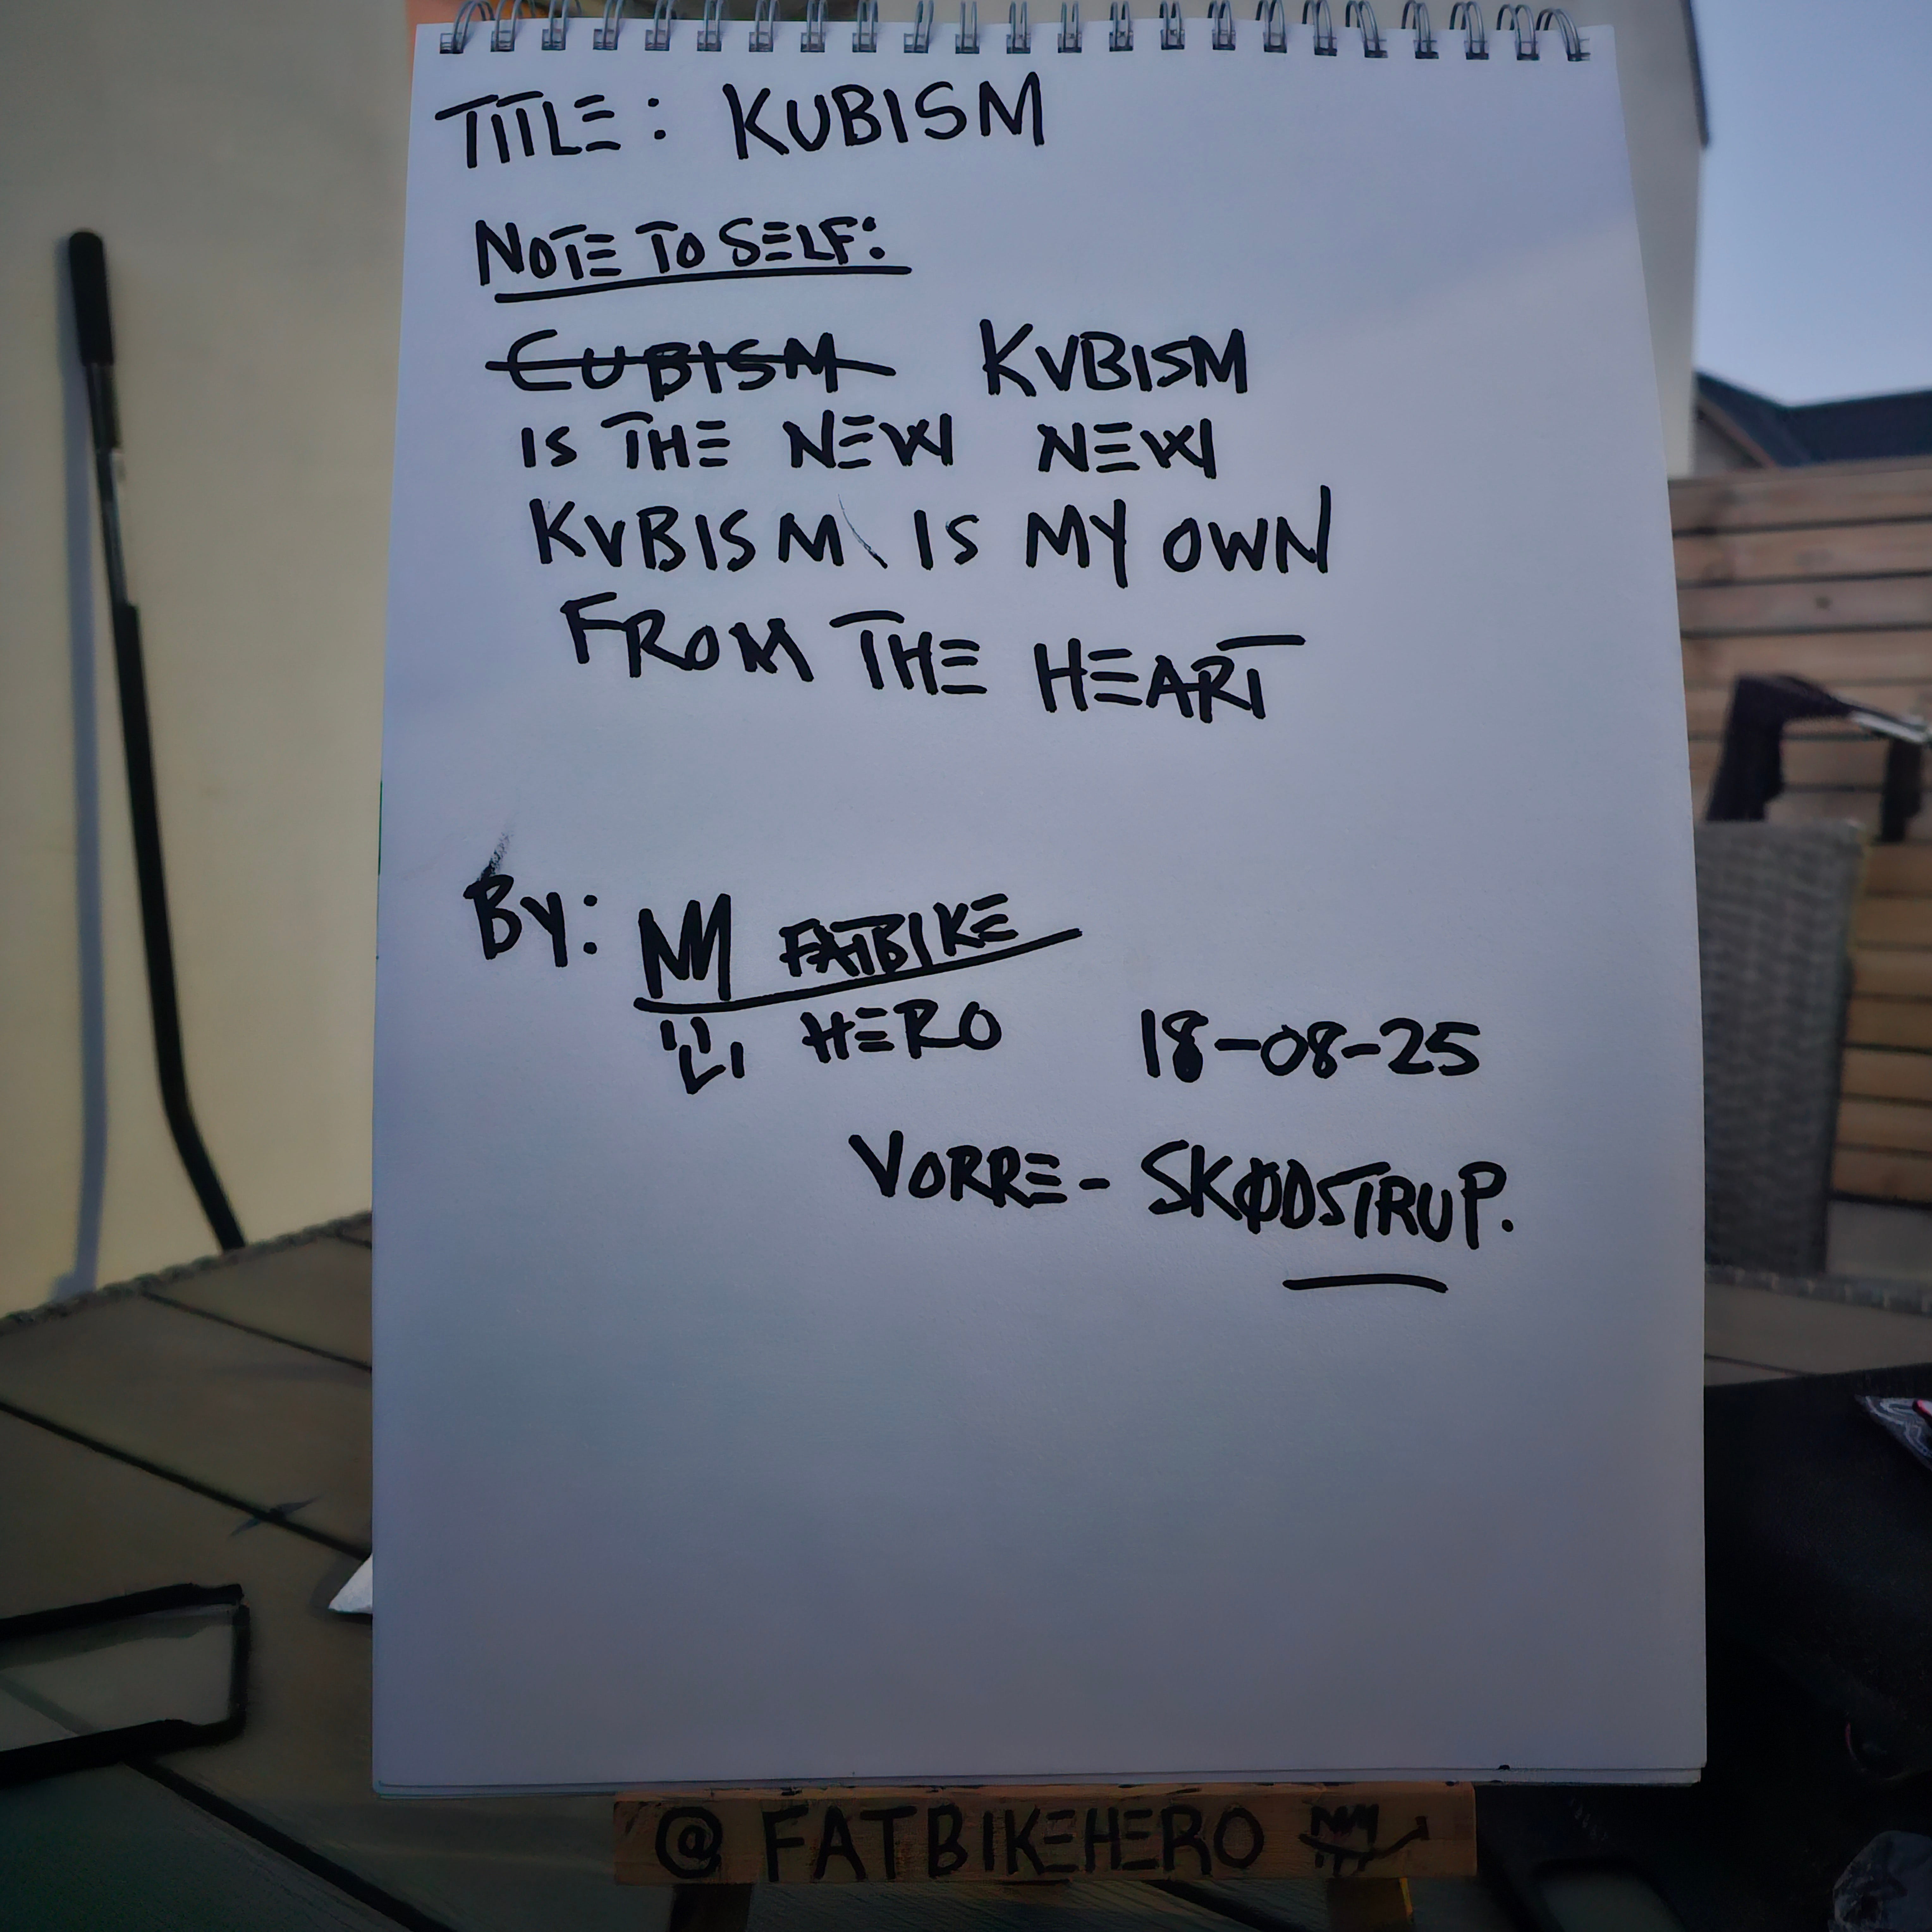 TITLE: KUBISM
NOTE TO SELF:
CUBISM KVBISM
IS THE NEW NEW
KVBISM IS MY OWN
FROM THE HEART
BY: FATBIKE
HERO 18-08-25
VORRE- SKØDSTRUP.
@FATBIKEHERO